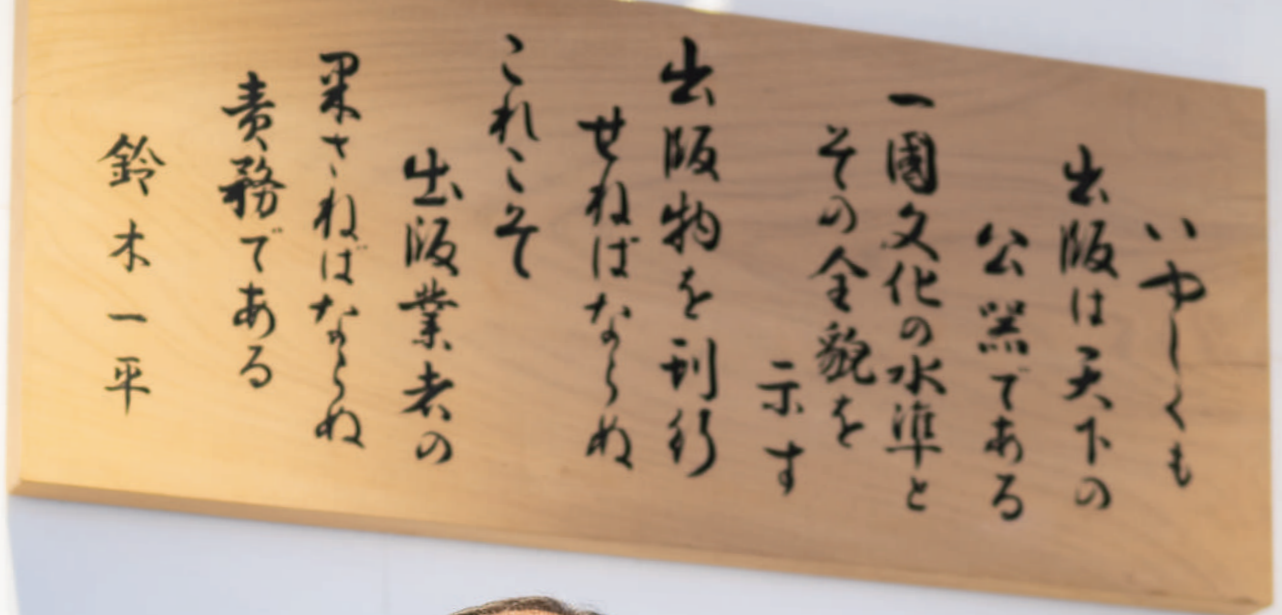 いやしくも
出版は天下の
公器である
一國文化の水準と
その全貌を
示す
出版物を刊行
せねばならぬ
これこそ
出版業者の
果さねばならぬ
責務である
鈴木一平